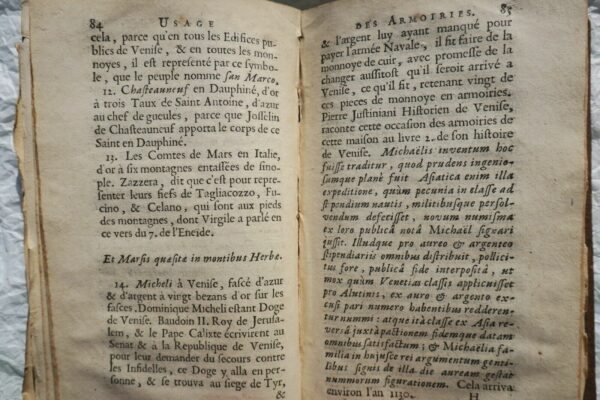 84 USAGE
cela, parce qu'en tous les Edifices pu-
blics de Venise, & en toutes les mon-
noyes, il est representé par ce symbo-
le, que le peuple nomme san Marco.
12. Chasteauneuf en Dauphiné, d'or
à trois Taux de Saint Antoine, d'azur
au chef de gueules, parce que Josselin
de Chasteauneuf apporta le corps de ce
Saint en Dauphiné.
13. Les Comtes de Mars en Italie,
d'or à six montagnes entassées de sino-
ple. Zazzera, dit que c'est pour repre-
senter leurs fiefs de Tagliacozzo, Fu-
cino, & Celano, qui sont aux pieds
des montagnes, dont Virgile a parlé en
ce vers du 7. de l'Eneide.
Et Marsis quæsitæ in montibus Herbæ.
14. Micheli à Venise, fascé d'azur
& d'argent à vingt bezans d'or sur les
fasces. Dominique Micheli estant Doge
de Venise. Baudoin II. Roy de Jerusa-
lem, & le Pape Calixte écrivirent au
Senat & à la Republique de Venise,
pour leur demander du secours contre
les Infidelles, ce Doge y alla en per-
sonne, & se trouva au siege de Tyr,
&
DES ARMOIRIES. 85
& l'argent luy ayant manqué pour
payer l'armée Navale, il fit faire de la
monnoye de cuir, avec promesse de la
changer aussitost qu'il seroit arrivé a
Venise, ce qu'il fit, retenant vingt de
ces pieces de monnoye en armoiries.
Pierre Justiniani Historien de Venise,
raconte cette occasion des armoiries de
cette maison au livre 2. de son histoire
de Venise. Michaëlis inventum hoc
fuisse traditur, quod prudens ingenio-
sumque planè fuit Asiatica enim illa
expeditione, quùm pecunia in classe ad
stipendium nautis, militibusque persol-
vendum defecisset, novum numisma
ex loro publicâ notâ Michaël signari
jussit. Illudque pro aureo & argenteo
stipendiariis omnibus distribuit, pollici-
tus fore, publicâ fide interpositâ, ut
mox quùm Venetias classis applicuisset
pro Alutinis, ex auro & argento ex-
cusi pari numero habentibus redderen-
tur nummi: atque ità classe ex Asia re-
versâ juxtà pactionem fidemque datam
omnibus satisfactum; & Michaëlia fa-
milia in hujusce rei argumentum genti-
libus signis de illa die auream gestat
nummorum figurationem. Cela arriva
environ l'an 1130.
H